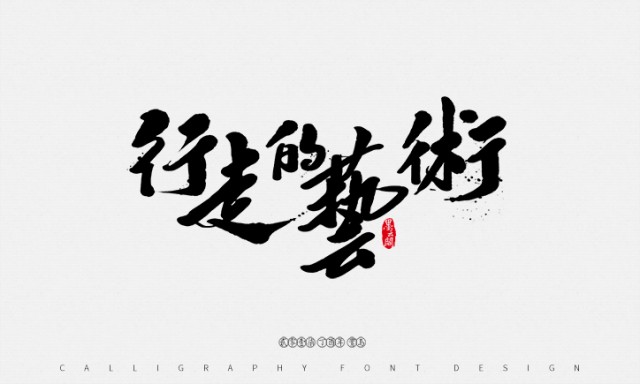 行走的藝術
CALLIGRAPHY FONT DESIGN